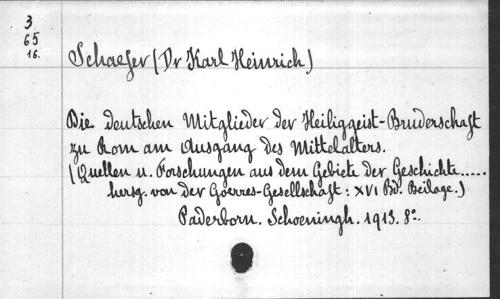 3
65
16.
Schaefer (Dr Karl Heinrich)
Die deutschen Mitglieder der Heiliggeist-Bruderschaft
zu Rom am Ausgang des Mittelalters.
(Quellen u. Forschungen aus dem Gebiete der Geschichte.....
hersg. von der Goerres-Gesellschaft: XVI Bd. Beilage.)
Paderborn. Schoeningh. 1913. 8º.